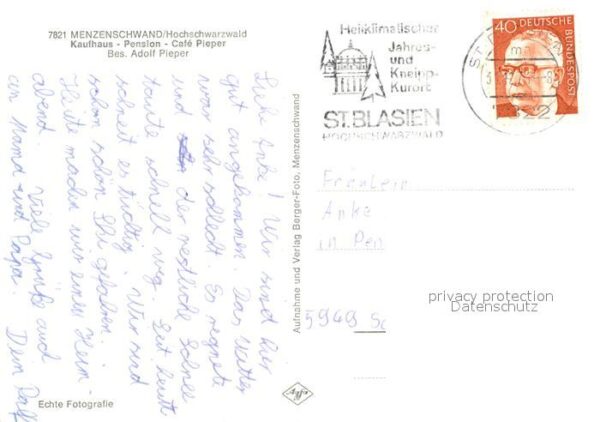 7821 MENZENSCHWAND/Hochschwarzwald
Kaufhaus - Pension - Café Pieper
Bes. Adolf Pieper
Liebe Anke! Wir sind hier
gut angekommen. Das Wetter
war sehr schlecht. Es regnete
und der restliche Schnee
taute schnell weg. Seit heute
schneit es tüchtig. Wir sind
schon schon Ski gefahren.
Heute machen wir einen Heim-
abend. Viele Grüße auch
an Mama und Papa. Dein Ralf
Echte Fotografie
Aufnahme und Verlag Berger-Foto, Menzenschwand
Agfa
Heilklimatischer
Jahres-
und
Kneipp-
Kurort
ST. BLASIEN
HOCHSCHWARZWALD
40 DEUTSCHE
BUNDESPOST
Fräulein
Anke
in Pen
5969 Sc
privacy protection
Datenschutz